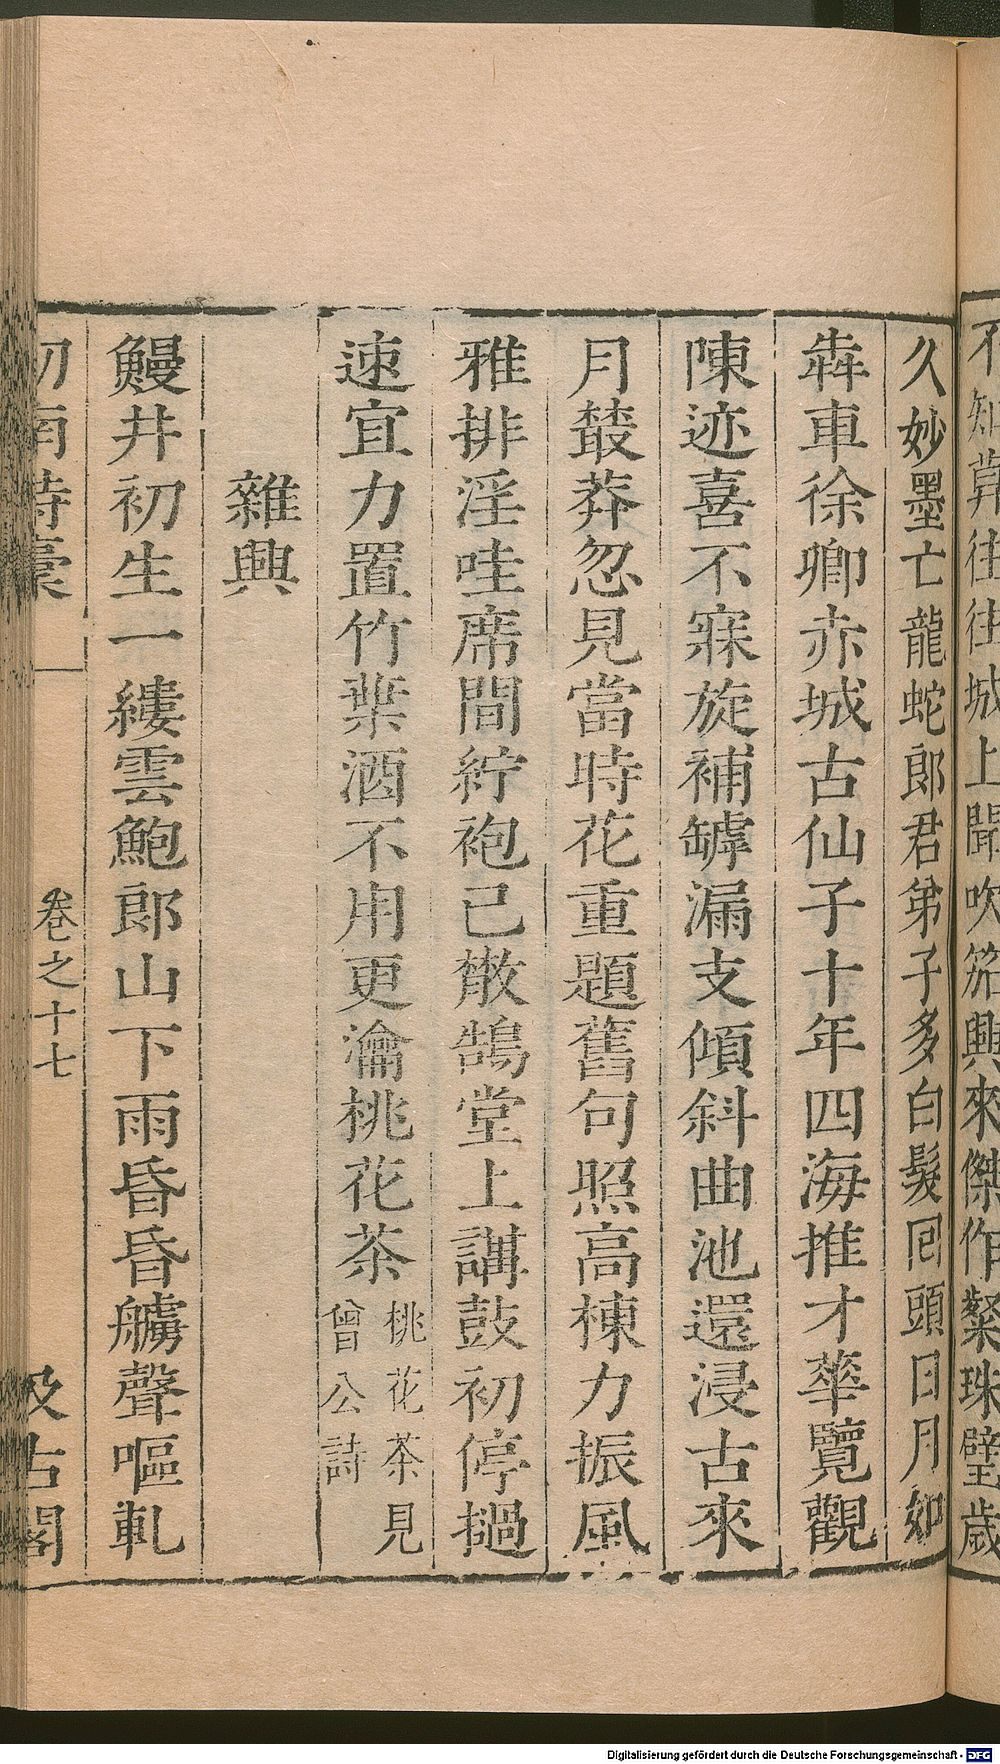 不知葬往往城上聞吹笳興來傑作粲珠璧歲
久妙墨亡龍蛇郎君弟子多白髮回頭日月如
犇車徐卿赤城古仙子十年四海推才華覽觀
陳迹喜不寐旋補罅漏支傾斜曲池還浸古來
月䕺莽忽見當時花重題舊句照高棟力振風
雅排淫哇席間紵袍已散鵠堂上講鼓初停撾
速宜力置竹葉酒不用更瀹桃花茶桃花茶見
曾公詩
雜興
鰻井初生一縷雲鮑郎山下雨昏昏艣聲嘔軋
劍南詩稾
卷之十七
汲古閣
Digitalisierung gefördert durch die Deutsche Forschungsgemeinschaft - DFG